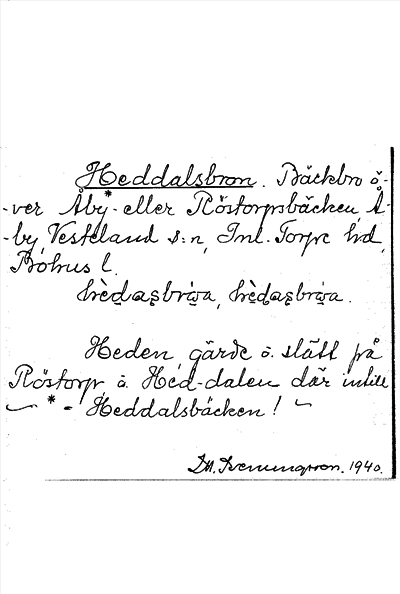 Heddalsbron. Bäckbro ö-
-ver Åby*- eller Röstorpsbäcken, Å-
-by, Vesteland s:n, Inl. Torpe hd,
Bohus l.
hèdasbròa, hèdasbròa.
Heden, gärde o. slätt på
Röstorp å Hed-dalen där intill
* = Heddalsbäcken!
1940.